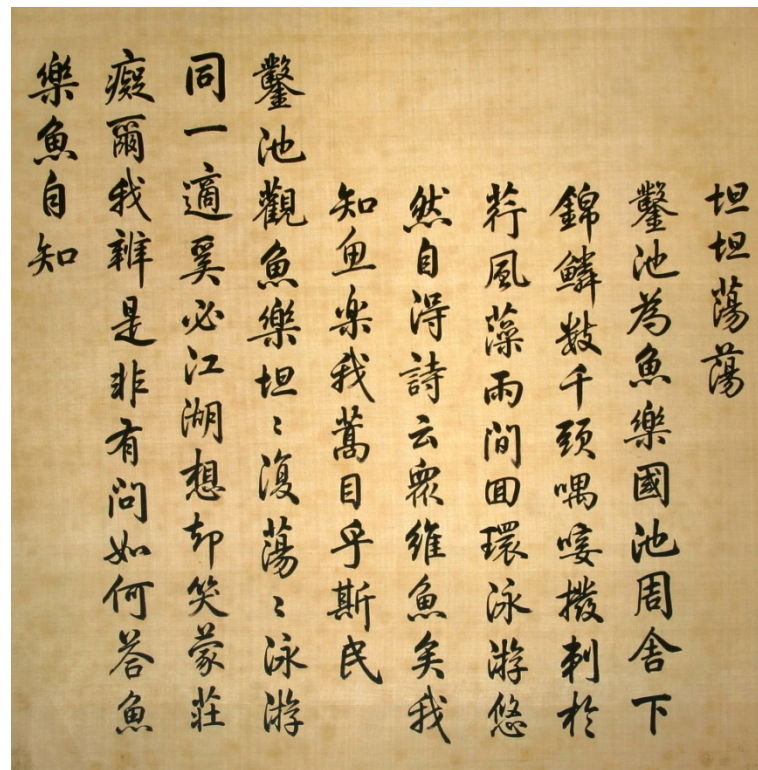 坦坦蕩蕩
鑿池為魚樂國池周舍下
錦鱗數千頭喁唼撥刺於
荇風藻雨間回環泳游悠
然自得詩云衆維魚矣我
知魚楽我蒿目乎斯民
鑿池觀魚樂坦〻復蕩〻泳游
同一適奚必江湖想却笑蒙莊
癡爾我辨是非有問如何答魚
樂魚自知